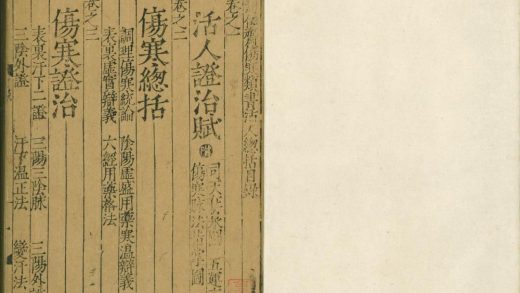 傷寒類書活人總括目錄
卷之一
活人證治賦
司天 五運
傷寒 圖
卷之二
傷寒總括
調理傷寒統論 陰陽虛盛用藥寒溫辯義
表裏虛實辯義 六經用藥格法
卷之三
傷寒證治
表裏汗下二證 三陽三陰脉 三陽外
三陰外證 汗下溫正法 變汗法